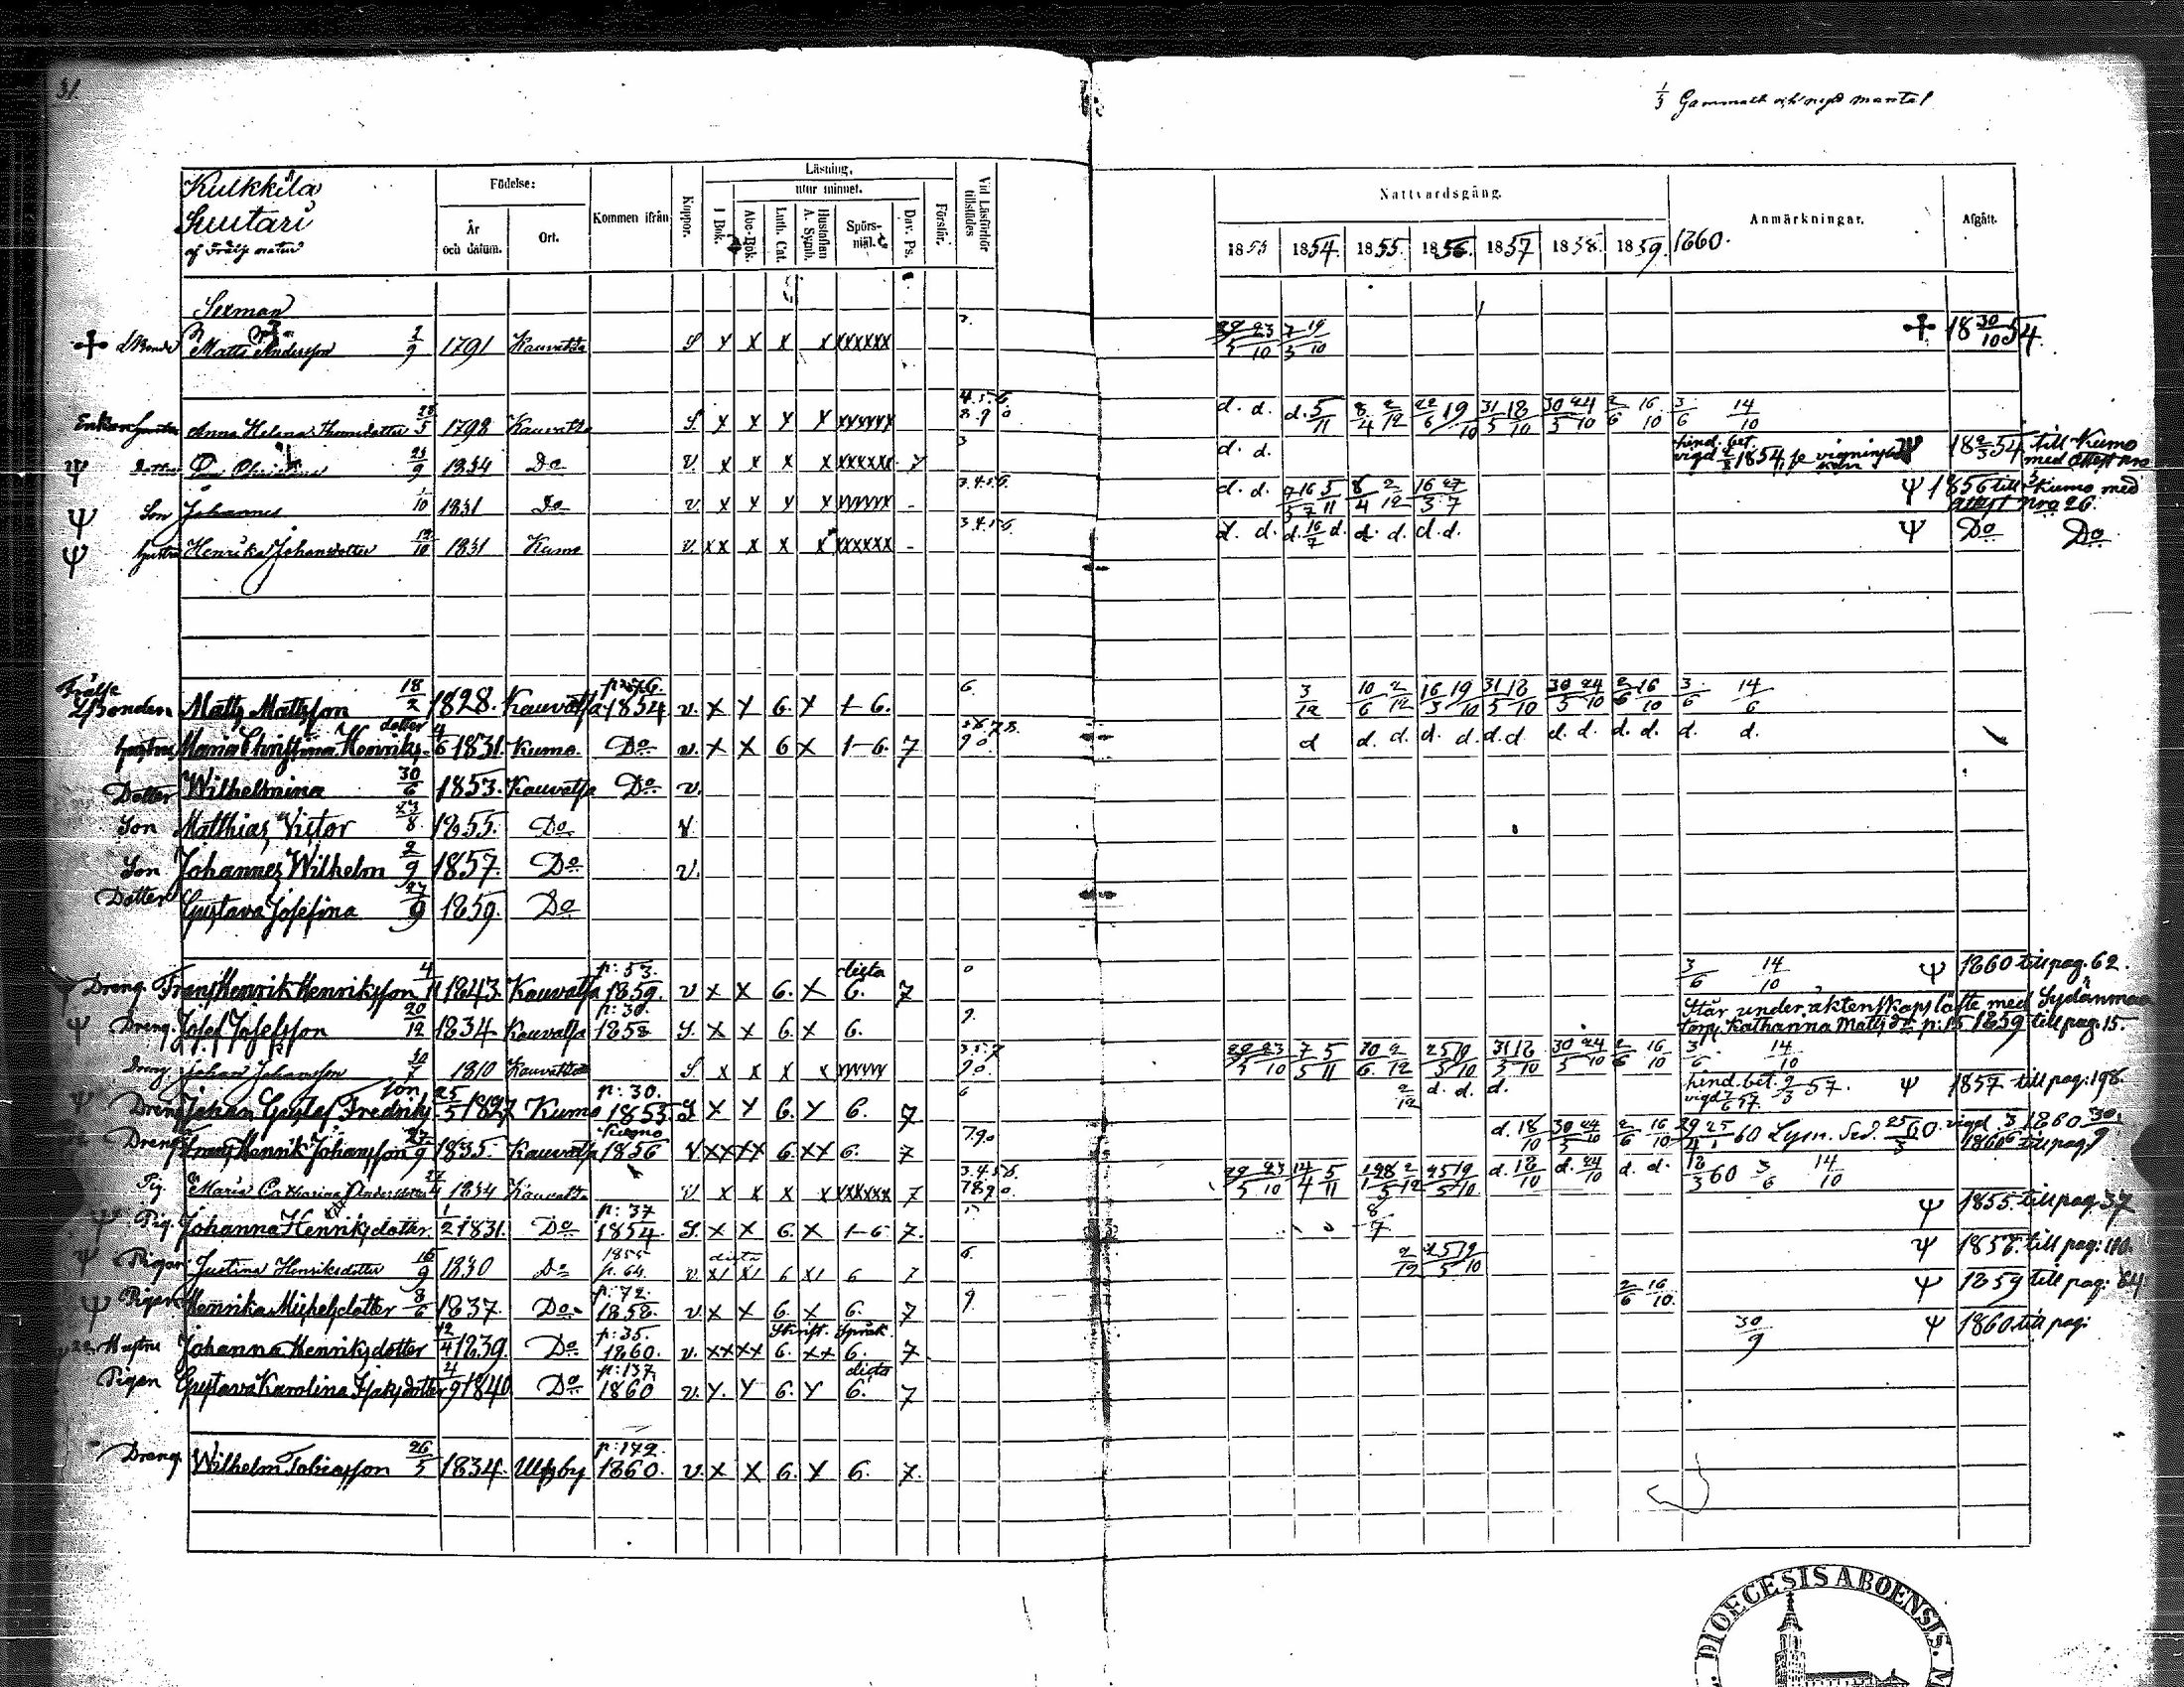 31
1/3 Gammalt och nytt mantal
Kulkkila
Suutari
af Frälse natur
Födelse:
År och datum.
Ort.
Kommen ifrån
Koppor.
Läsning,
utur minnet.
I Bok.
Abc-Bok.
Luth. Cat.
Hustaflan A. Symb.
Spörsmål.
Dav. Ps.
Förstår.
Vid Läsförhör tillstädes
Nattvardsgång.
1853 1854. 1855. 1856. 1857 1858. 1859. 1860.
Anmärkningar.
Afgått.
Sexman
Bonde Matts Andersson 2/9 1791 Kauvatsa S x x x x xxxxxx 29/5 23/10 7/5 19/10 18 30/10 54.
Enkan Anna Helena Thomsdotter 28/5 1798 Kauvatsa S x x x x xxxxxx d. d. d. 5/11 8/4 2/12 22/6 19/10 31/5 18/10 30/5 24/10 2/6 16/10 3/6 14/10
Dotter Christina 23/9 1834 Do v. x x x x xxxxxx 7 d. d. hind. bet. vigd 1854 18 54 till Kumo med attest
Son Johannes 1/10 1831 Do v. x x x x xxxxxx - d. d. 7/5 16/7 5/11 8/4 2/12 16/3 27/7 Ψ 1856 till Kumo med attest Nro 26.
Hustru Henrika Johansdotter 12/10 1831 Kumo v. xx x x x xxxxxx - d. d. d. 16/7 d. d. d. d. d. Ψ Do Do
Frälse
Bonden Matts Mattsson 18/2 1828. Kauvatsa 1854 v. x x 6. x 1-6. 6. 3/12 10/6 2/12 16/3 19/10 31/5 18/10 30/5 24/10 2/6 16/10 3/6 14/6
Hustru Maria Christina Henriksdotter 4/6 1831. Kumo. Do v. x x 6 x 1-6. 7 d d. d. d. d. d. d. d. d. d. d. d. d.
Dotter Wilhelmina 30/6 1853. Kauvatsa Do v.
Son Matthias Victor 23/8 1855. Do v
Son Johannes Wilhelm 2/9 1857. Do v.
Dotter Gustava Josefina 27/9 1859. Do
Dreng Frans Henrik Henriksson 4/11 1843. Kauvatsa p: 53. 1859. v x x 6. x 6. 7 0 3/6 14/10 Ψ 1860 till pag. 62.
Dreng. Josef Josefsson 20/12 1834 Kauvatsa p: 30. 1858 S. x x 6. x 6. 9. Står under äktenskapslöfte med Sydänmaa torp. Kathanna Matts dr p: 15 1859 till pag. 15.
Dreng Johan Johansson 30/7 1810 Kauvatsa S x x x x xxxxxx 29/5 23/10 7/5 5/11 30/6 2/12 25/5 19/10 31/5 18/10 30/5 24/10 2/6 16/10 3/6 14/10
Dreng Johan Gustaf Fredriksson 25/5 1827 Kumo p: 30. 1853 S x x 6. x 6. 7 6 2/12 d. d. d. hind. bet. 2/3 57. vigd 7/6 57. Ψ 1857 till pag: 198.
Dreng Frans Henrik Johansson 27/9 1835. Kauvatsa Kumo 1856 v xx xx 6. xx 6. 7 7.9.0 d. 18/10 30/5 24/10 2/6 16/10 60 Lysn. Sed. 25/3 60. vigd. 1860 till pag
Pig. Maria Catharina Andersdotter 27/4 1834 Kauvatsa v x x x x xxxxxx 7 29/5 23/10 14/4 5/11 25/5 19/10 d. 18/10 d. 24/10 d. d. 18/3 60 3/6 14/10
Pig. Johanna Henriksdotter 1/2 1831. Do p: 37 1854. S. x x 6. x 1-6 7. 8/7 Ψ 1855. till pag 37
Pigan Justina Henriksdotter 16/9 1830 Do 1855 p. 64. v. x1 x1 6 x1 6 7 6. 2/12 25/5 19/10 Ψ 1857. till pag: 110.
Pigan Henrika Michelsdotter 8/6 1837. Do. p: 72. 1858. v x x 6. x 6. 7 9. 2/6 16/10. Ψ 1859 till pag: 64
Hustru Johanna Henriksdotter 12/4 1839. Do p: 35. 1860. v. xx xx 6. xx 6. 7 30/9 Ψ 1860. till pag:
Pigan Gustava Karolina Isaksdotter 4/9 1840 Do p: 137. 1860 v. x. x 6. x 6. 7
Dreng. Wilhelm Tobiasson 26/5 1834. Ulfsby p: 172. 1860. v. x x 6. x 6. 7.
DIOECESIS ABOENSIS.